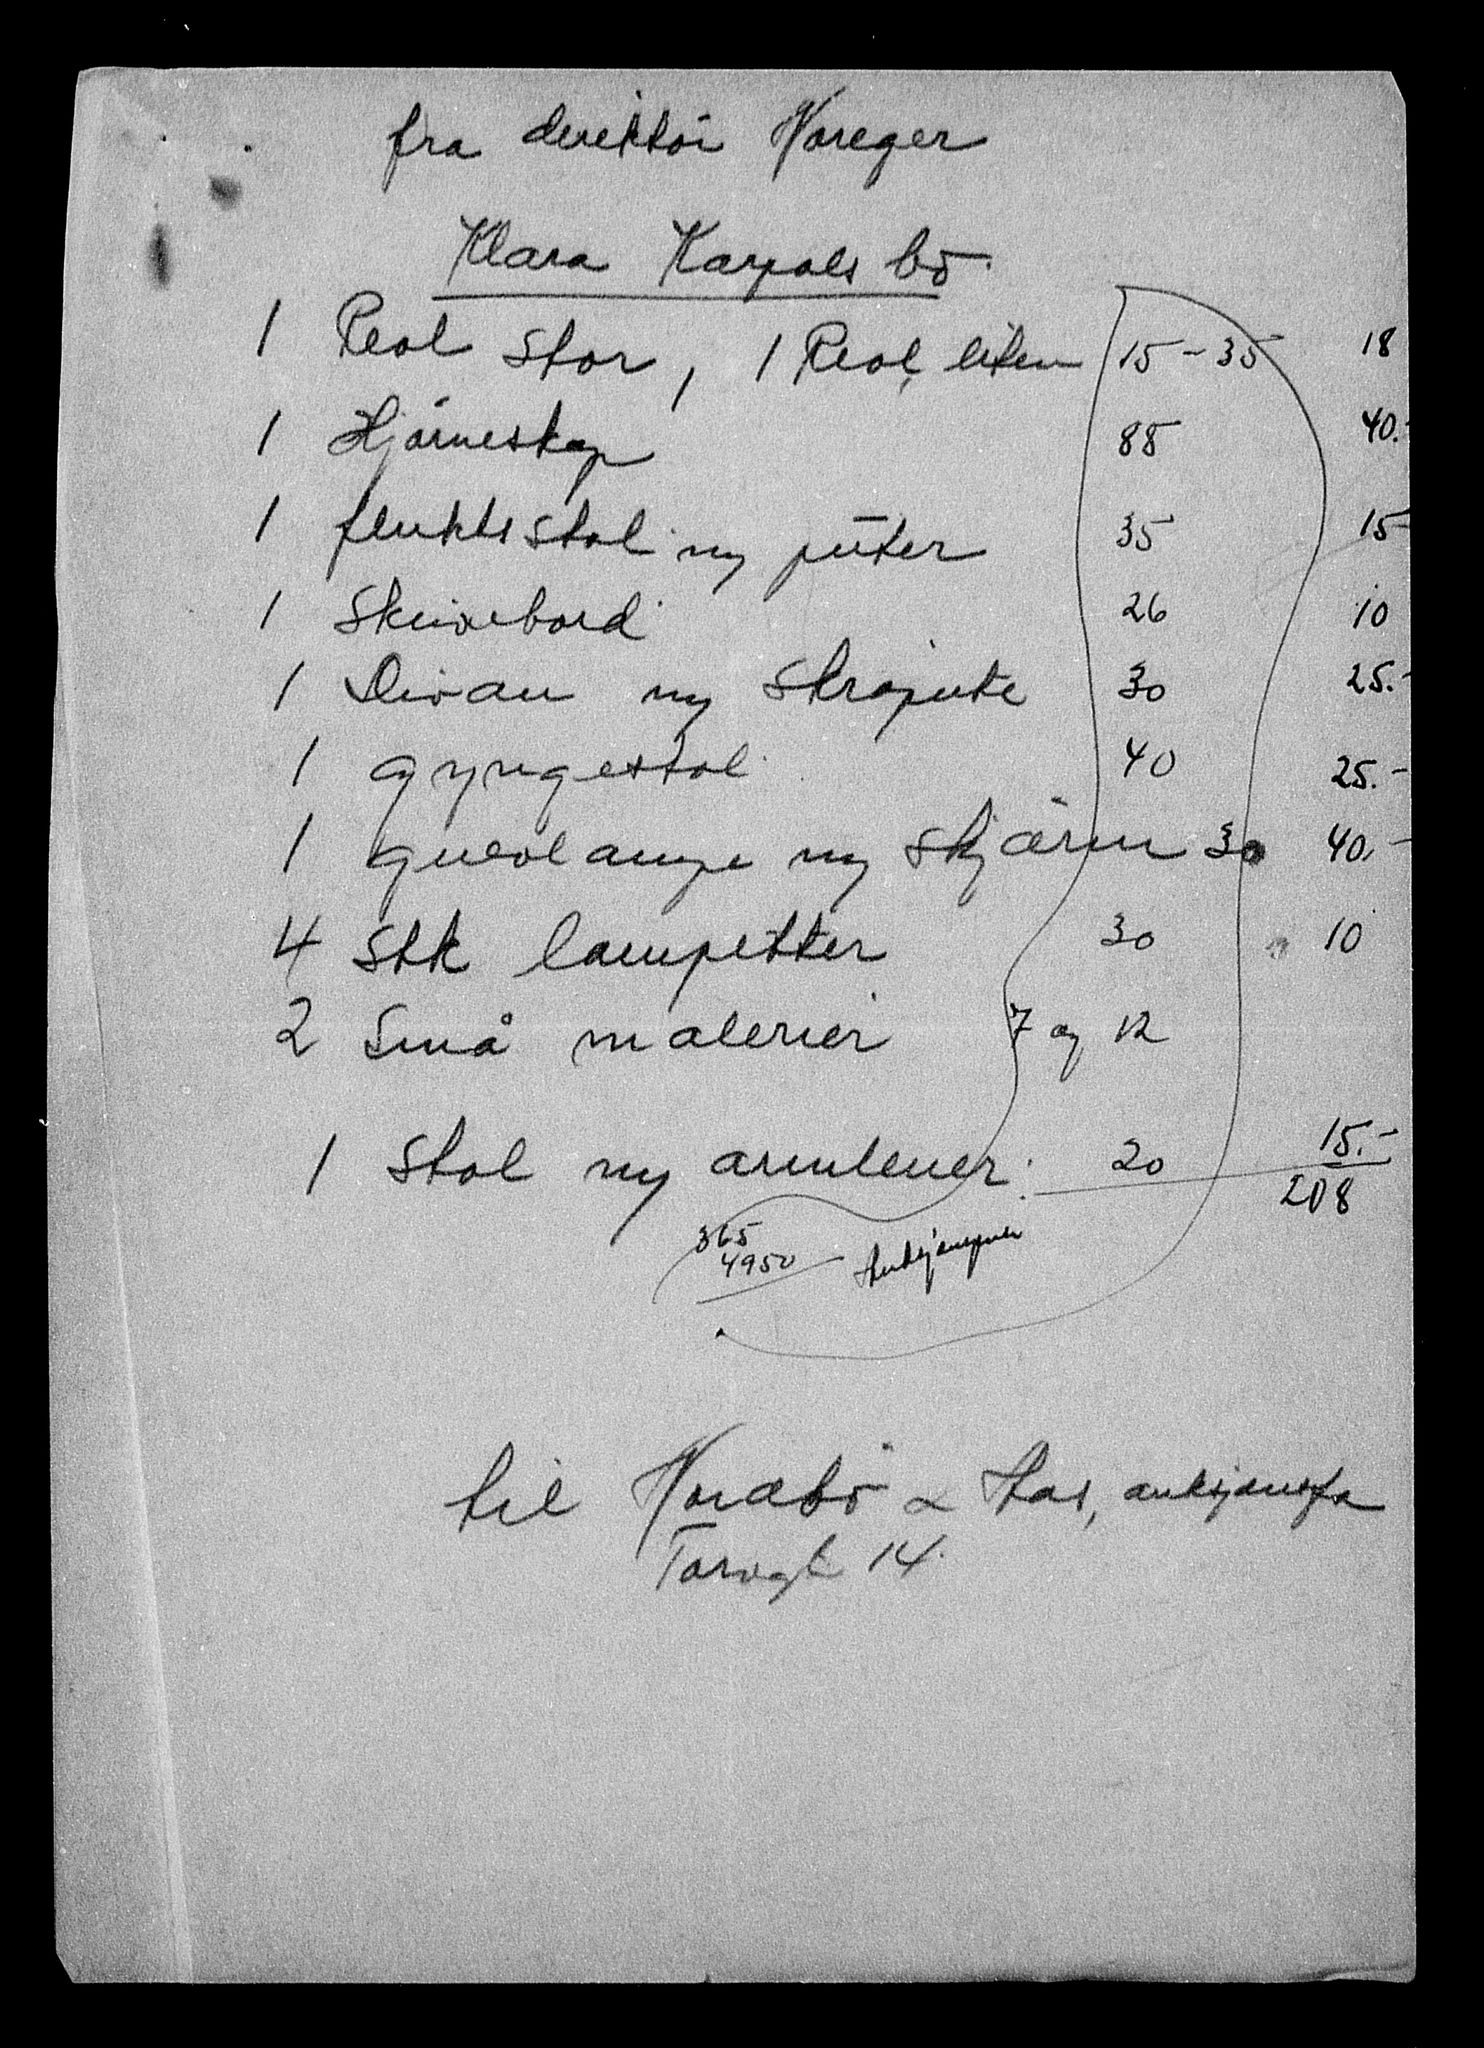 fra direktör Horeger
Klara Karpols bo.
1 Reol stor, 1 Reol, liten 15 - 35 18
1 Hjörneskap 88 40.-
1 fluktsstol m/ puter 35 15-
1 Skrivebord 26 10
1 Divan m/ skråpute 30 25.-
1 gyngestol 40 25.-
1 gulvlampe m/ skjärm 30 40,-
4 Stk lampetter 30 10
2 Små malerier 7 og 12
1 Stol m/ armlener. 20 15.-
208
365
4950
til & auksjonsfa
Torvgt 14.